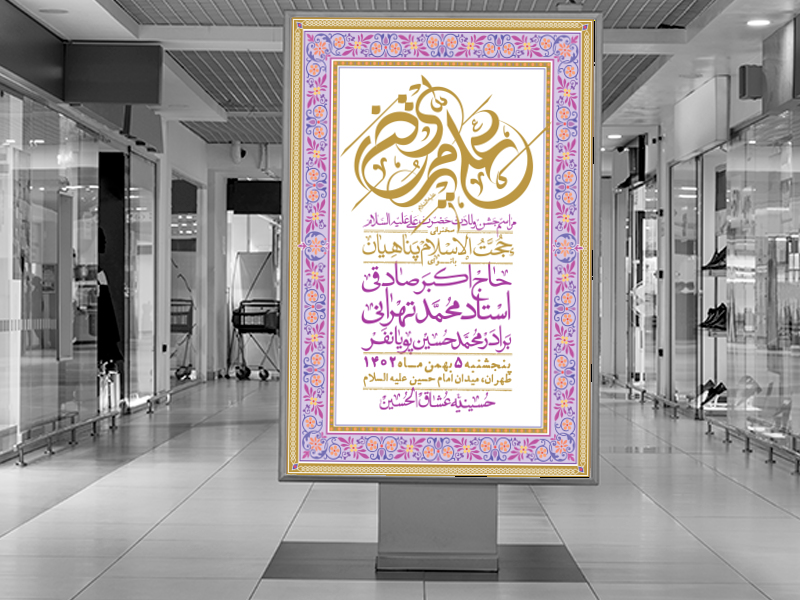 علی مرتضی
مراسم جشن ولادت حضرت علی علیه السلام
سخنرانی
حجت الاسلام پناهیان
بانوای
حاج اکبر صادقی
استاد محمد تهرانی
برادر محمد حسین پویانفر
پنجشنبه ۵ بهمن ماه ۱۴۰۲
طهران، میدان امام حسین علیه السلام
حسینیه عشاق الحسین